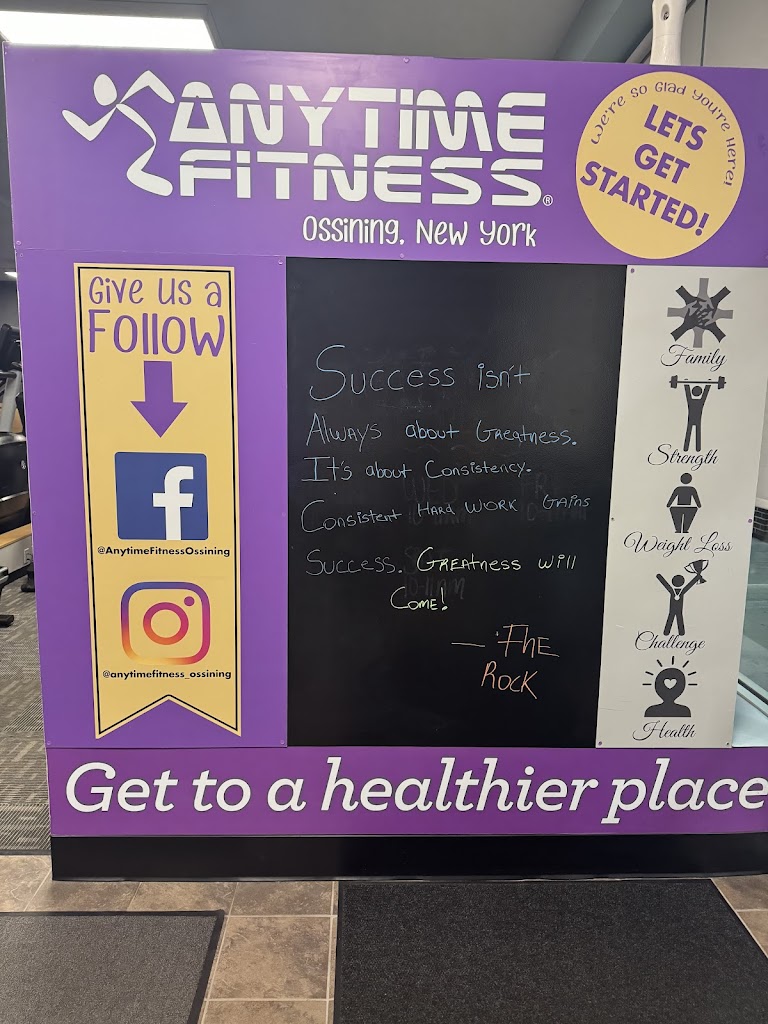 ANYTIME
FITNESS®
Ossining, New York
We're so Glad You're Here!
LETS
GET
STARTED!
Give us a
Follow
f
@AnytimeFitnessOssining
@anytimefitness_ossining
Success isn't
Always about Greatness.
It's about Consistency.
Consistent Hard Work Gains
Success. Greatness will
Come!
— The
Rock
Family
Strength
Weight Loss
Challenge
Health
Get to a healthier place